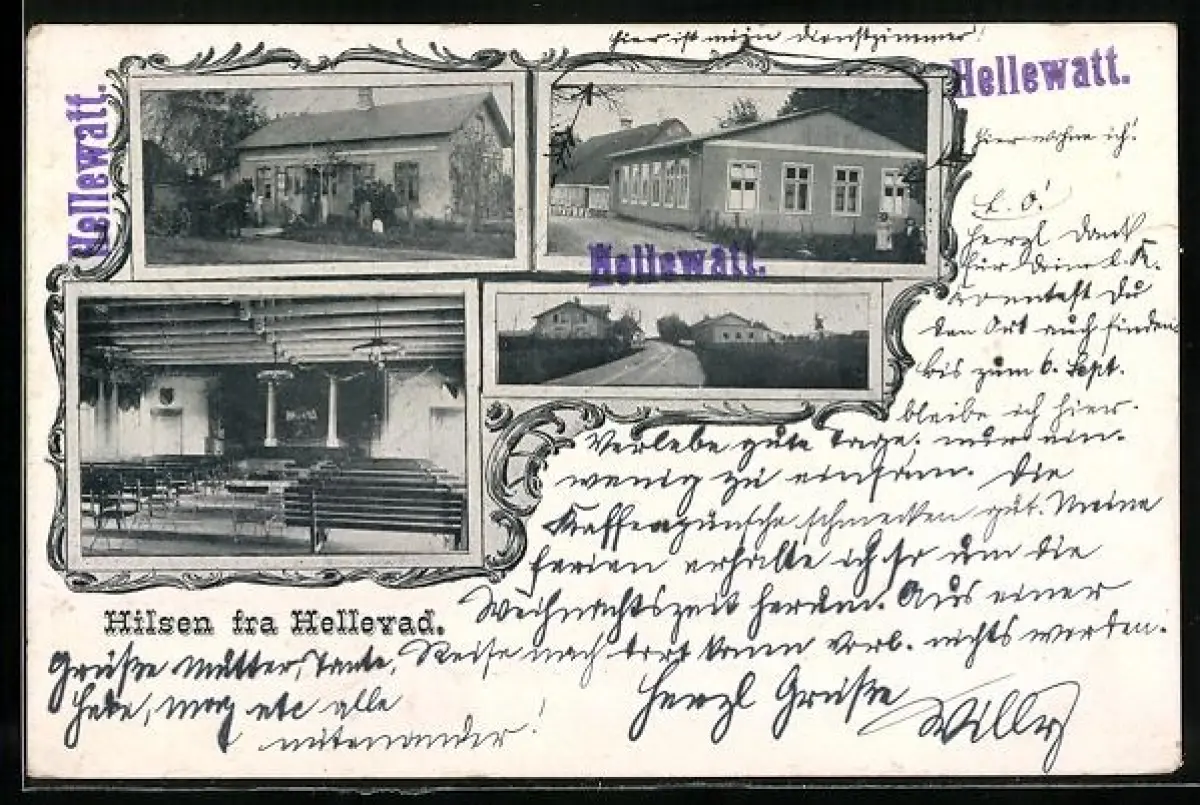 Hier ist mein Dienstzimmer!
Hellewatt.
Hellewatt.
Hier wohne ich!
L. O!
Herzl Dank
für Deine l. K.
Konntest Du
den Ort auch finden
bis zum 6. Sept.
bleibe ich hier.
Hellewatt.
Verlebe gute Tage. nur ein
wenig zu einsam. Die
Kaffeepünsche schmecken gut. Meine
Ferien erhalte ich so um die
Weihnachtszeit herum. Aus einer
Reise nach dort kann vorl. nichts werden.
Hilsen fra Hellevad.
Grüße Mutter, Tante,
etc alle
miteinander!
Herzl Grüße
Willy